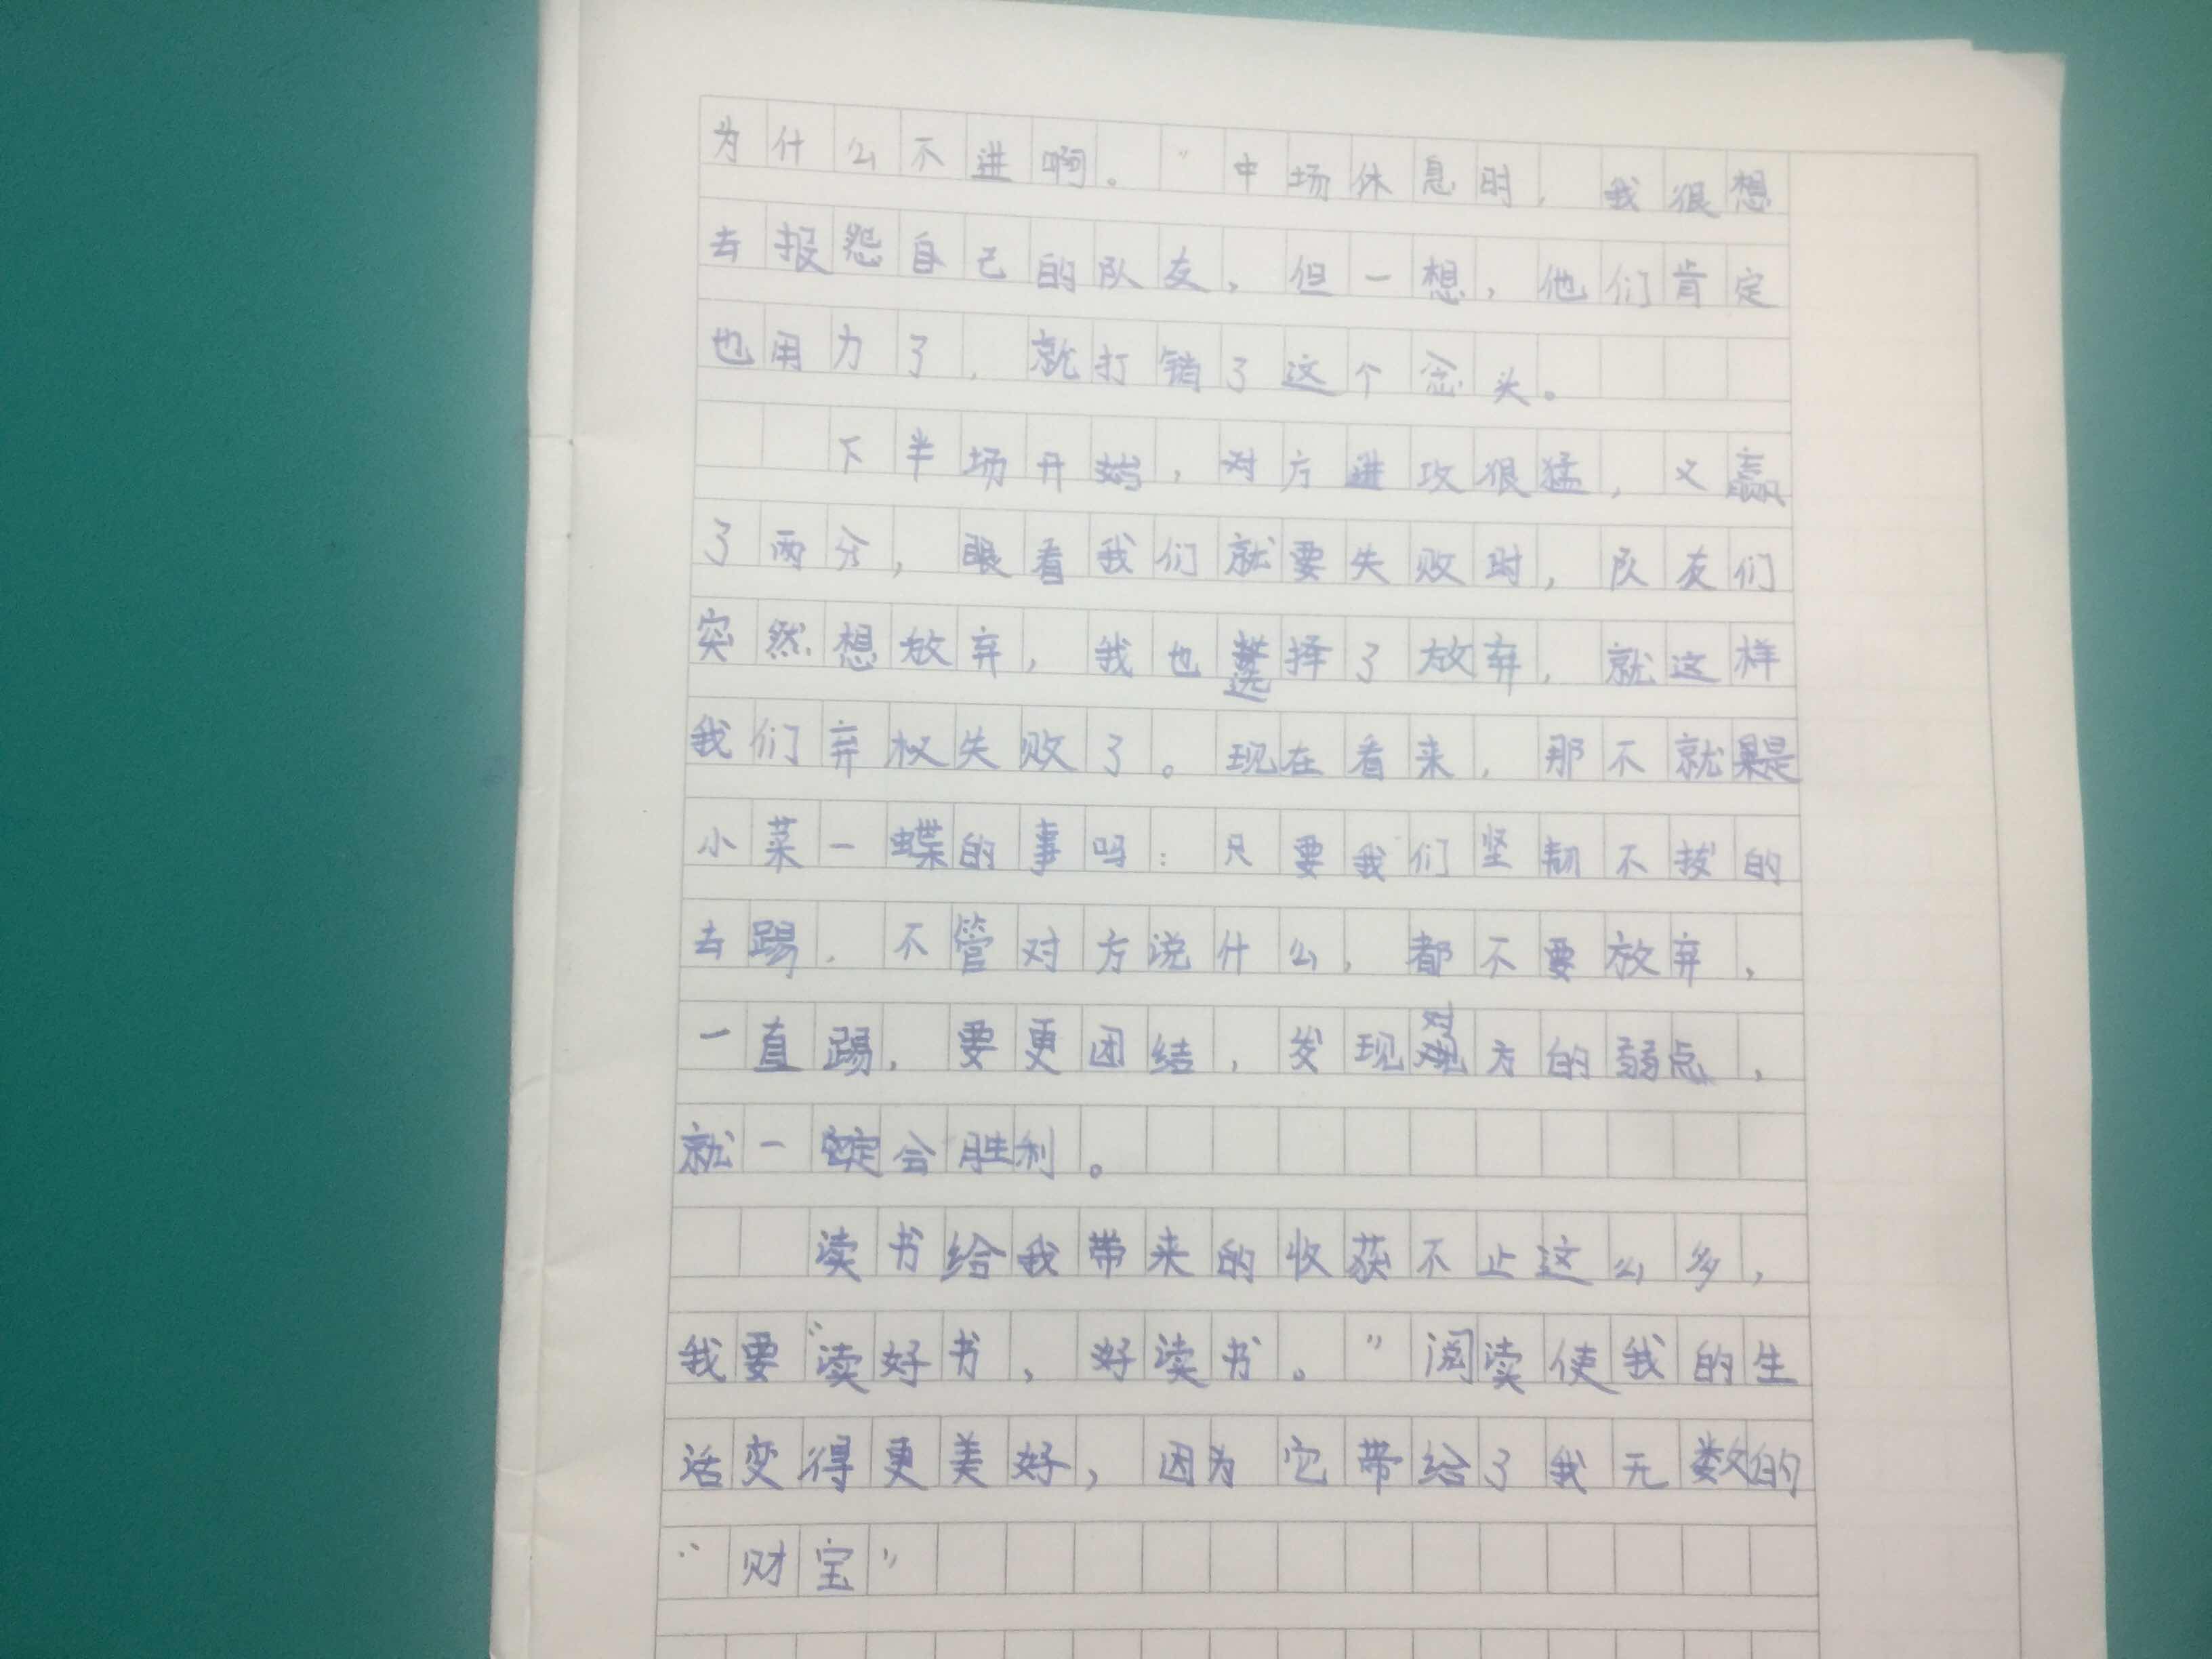 为什么不进啊。”中场休息时，我很想
去报怨自己的队友，但一想，他们肯定
也用力了，就打销了这个念头。
下半场开始，对方进攻很猛，又赢
了两分，眼看我们就要失败时，队友们
突然想放弃，我也选择了放弃，就这样
我们弃权失败了。现在看来，那不就是
小菜一蝶的事吗：只要我们坚韧不拔的
去踢，不管对方说什么，都不要放弃，
一直踢，要更团结，发现对方的弱点，
就一定会胜利。
读书给我带来的收获不止这么多，
我要“读好书，好读书。”阅读使我的生
活变得更美好，因为它带给了我无数的
“财宝”